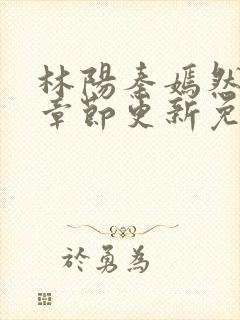 林陽秦嫣然
章節更新免
於勇為